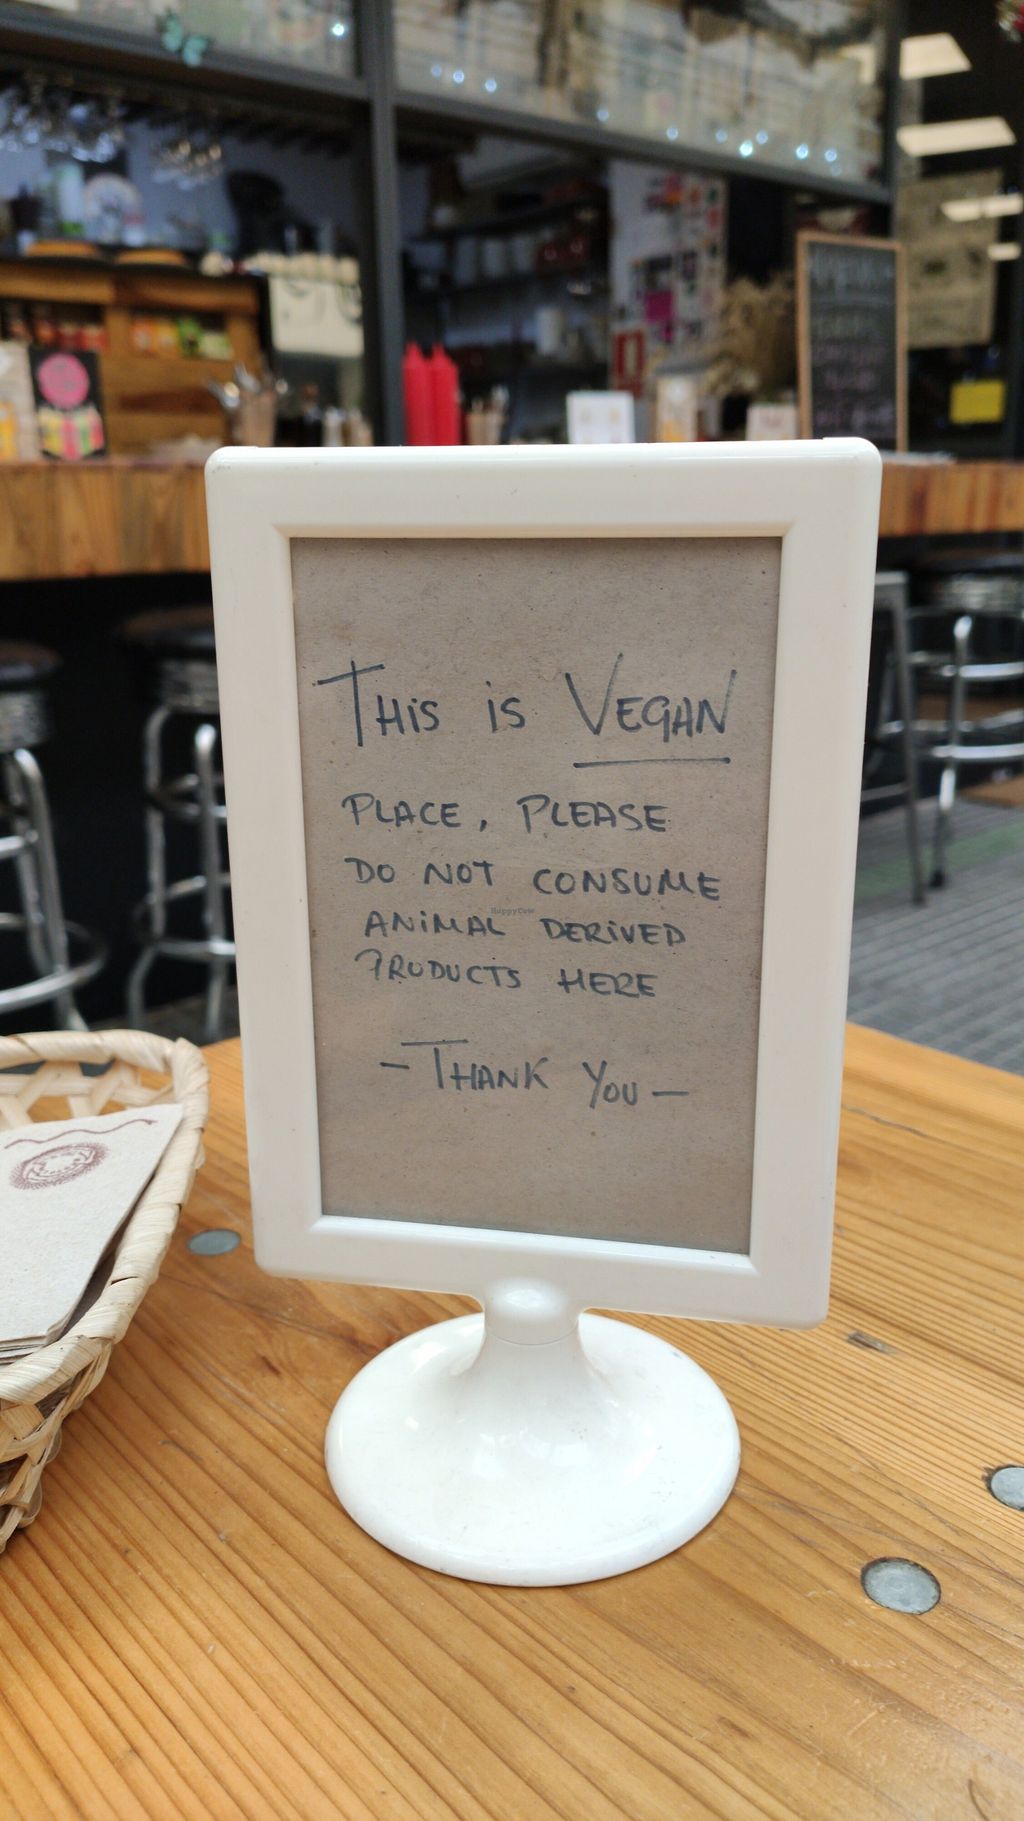 THIS IS VEGAN
PLACE, PLEASE
DO NOT CONSUME
ANIMAL DERIVED
PRODUCTS HERE
- THANK YOU -
HappyCow